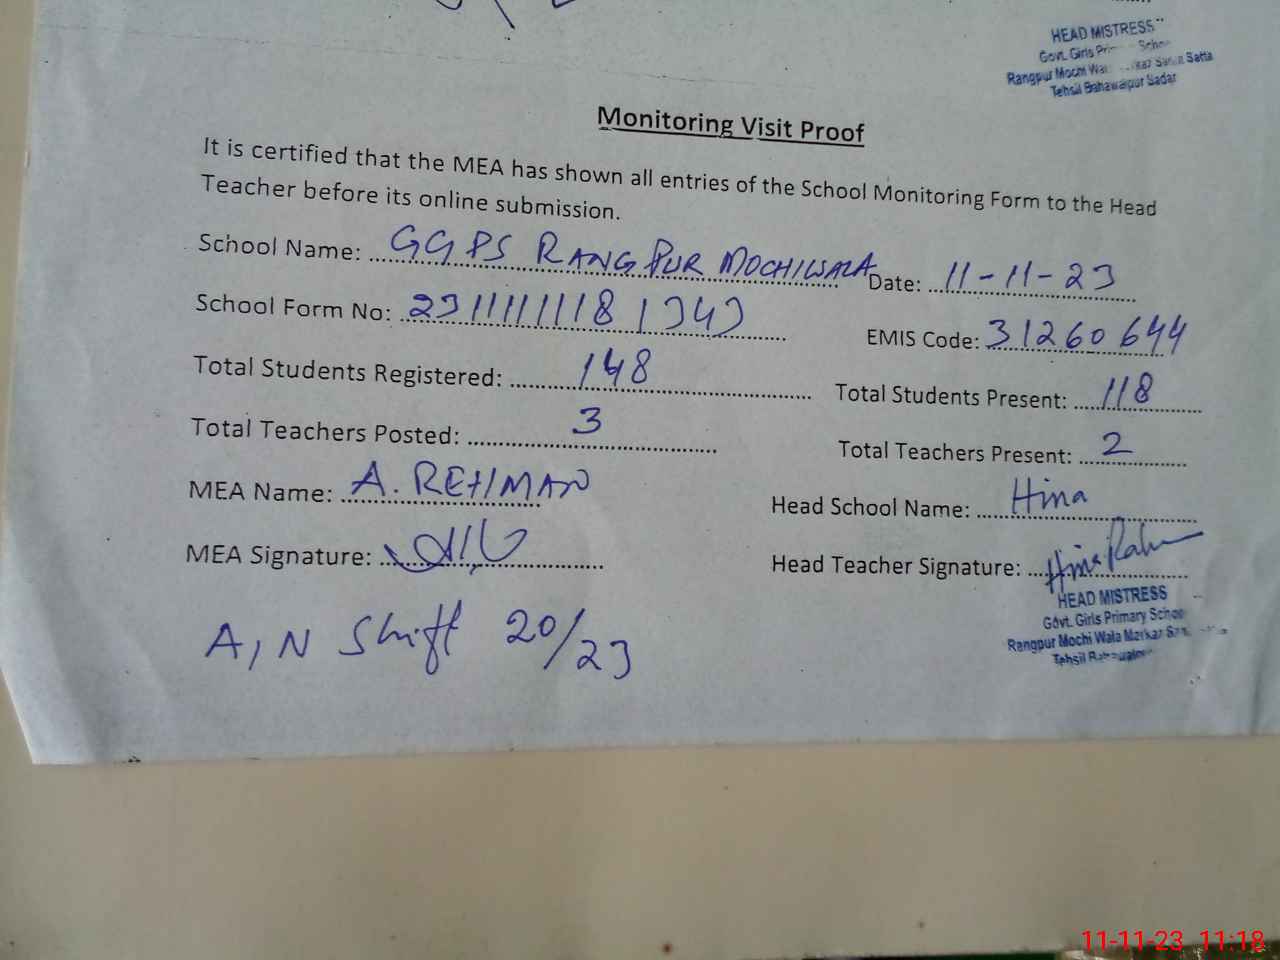 HEAD MISTRESS
Govt. Girls
Rangpur Mochi Satta
Tehsil Bahawalpur Sadar
Monitoring Visit Proof
It is certified that the MEA has shown all entries of the School Monitoring Form to the Head
Teacher before its online submission.
School Name: GGPS RANGPUR MOCHIWALA Date: 11-11-23
School Form No: EMIS Code: 31260644
Total Students Registered: 148 Total Students Present: 118
Total Teachers Posted: 3 Total Teachers Present: 2
MEA Name: A. REHMAN Head School Name: Hina
MEA Signature: Head Teacher Signature: Hina
HEAD MISTRESS
Govt. Girls Primary School
Rangpur Mochi Wala Markaz
Tehsil
A/N Shift 20/23
11-11-23 11:18